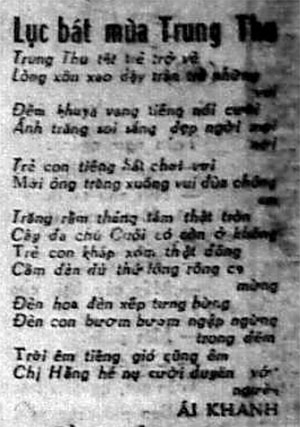 Lục bát mùa Trung Thu
Trung Thu tết trẻ trở về
Lòng xôn xao dậy trăn trở những
vui
Đêm khuya vang tiếng nói cười
Ánh trăng soi sáng đẹp ngời mọi
nơi
Trẻ con tiếng hát chơi vơi
Mời ông trăng xuống vui đùa chúng
em
Trăng rằm tháng tám thật tròn
Cây đa chú Cuội có còn ở không
Trẻ con khắp xóm thật đông
Cầm đèn đủ thứ lồng rồng ca
mừng
Đèn hoa đèn xếp tưng bừng
Đèn con bươm bướm ngập ngừng
trong đêm
Trời êm tiếng gió cũng êm
Chị Hằng hé nụ cười duyên với
người
ÁI KHANH